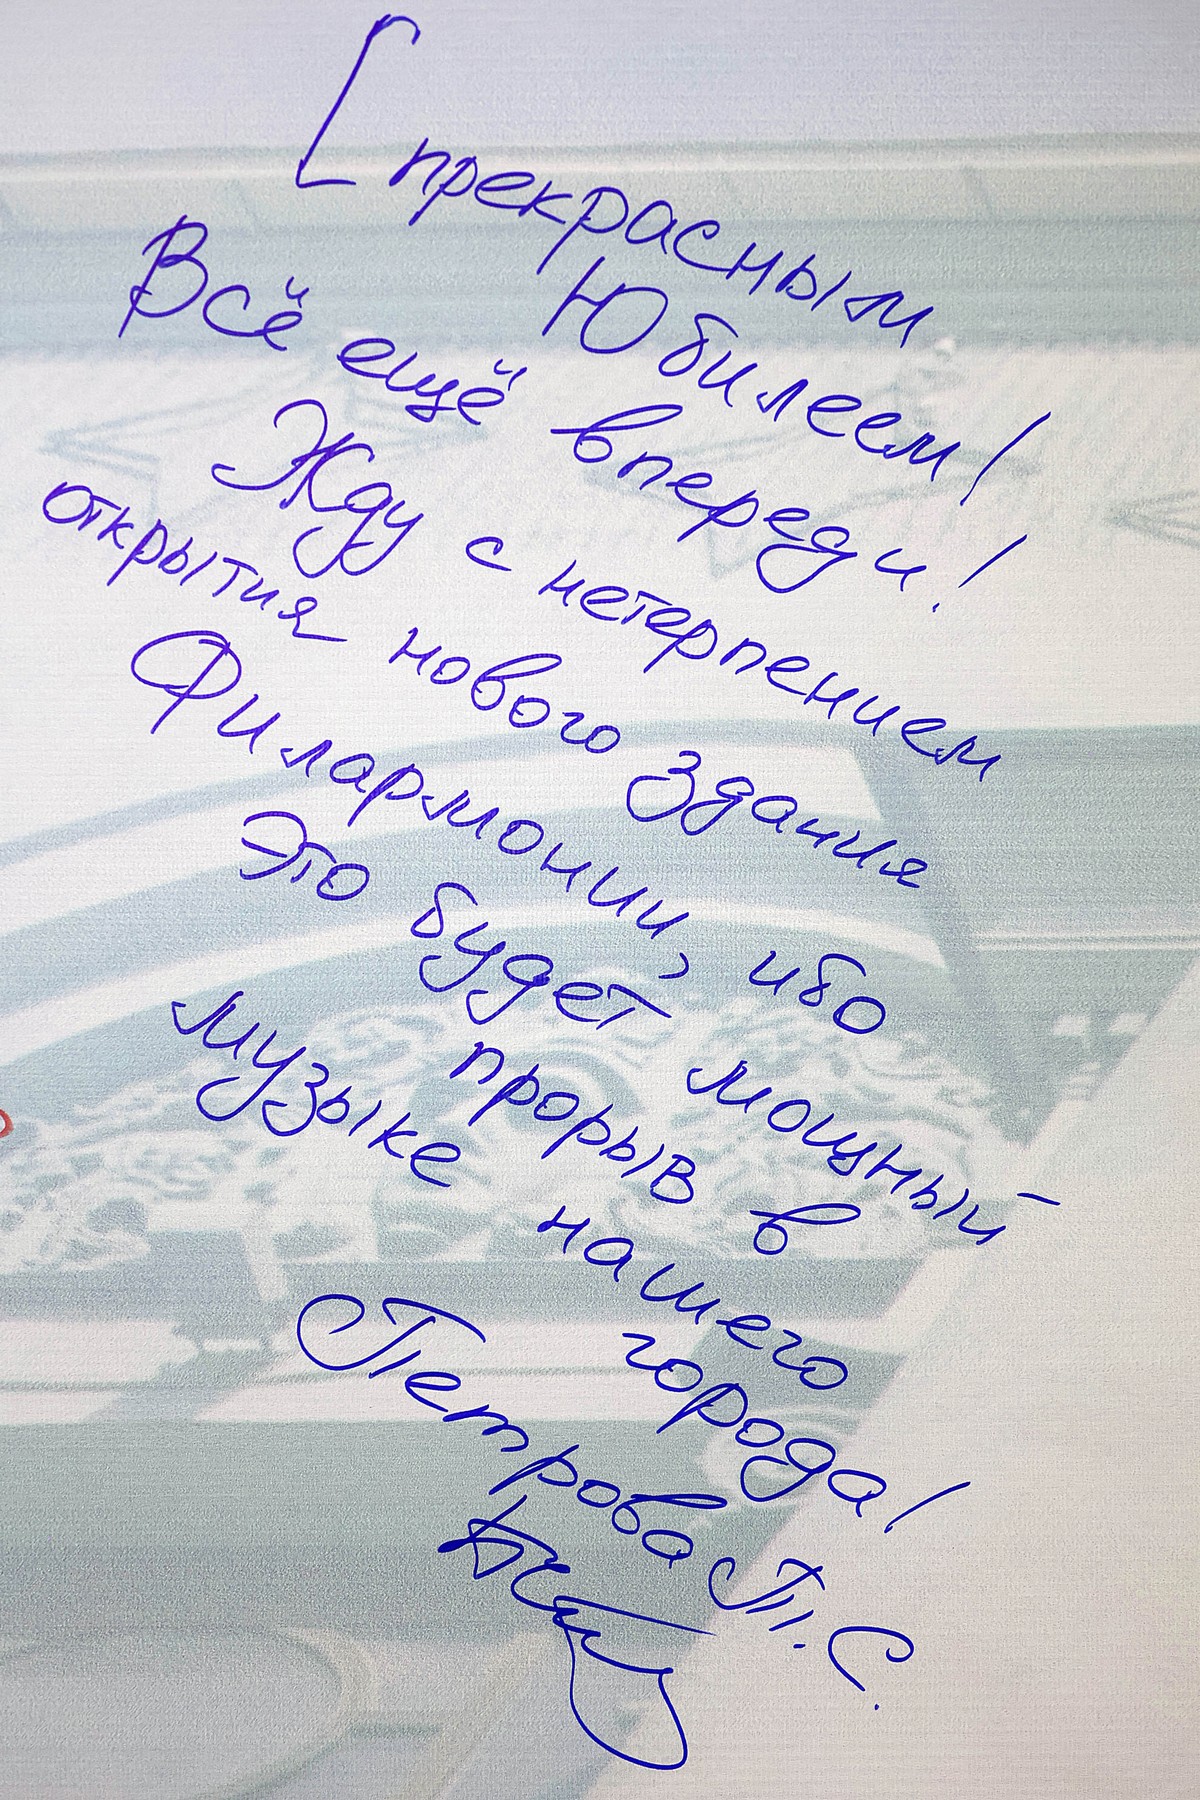 С прекрасным
Юбилеем!
Всё ещё впереди!
Жду с нетерпением
открытия нового здания
Филармонии, ибо
Это будет мощный
прорыв в
музыке нашего
города!
Петрова П.С.